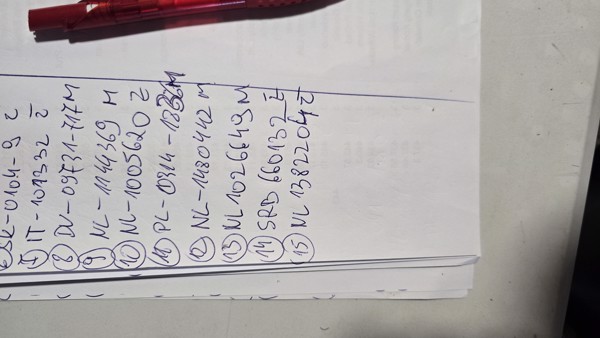 SK-0104-9 Ž
⑦ IT-101332 Ž
⑧ DV-09731-717M
⑨ NL-1144369 M
⑩ NL-1005620 Ž
⑪ PL-0314-18 M
⑫ NL-1480442 M
⑬ NL1026649 M
⑭ SRB 660132 Ž
⑮ NL 1382204 Ž